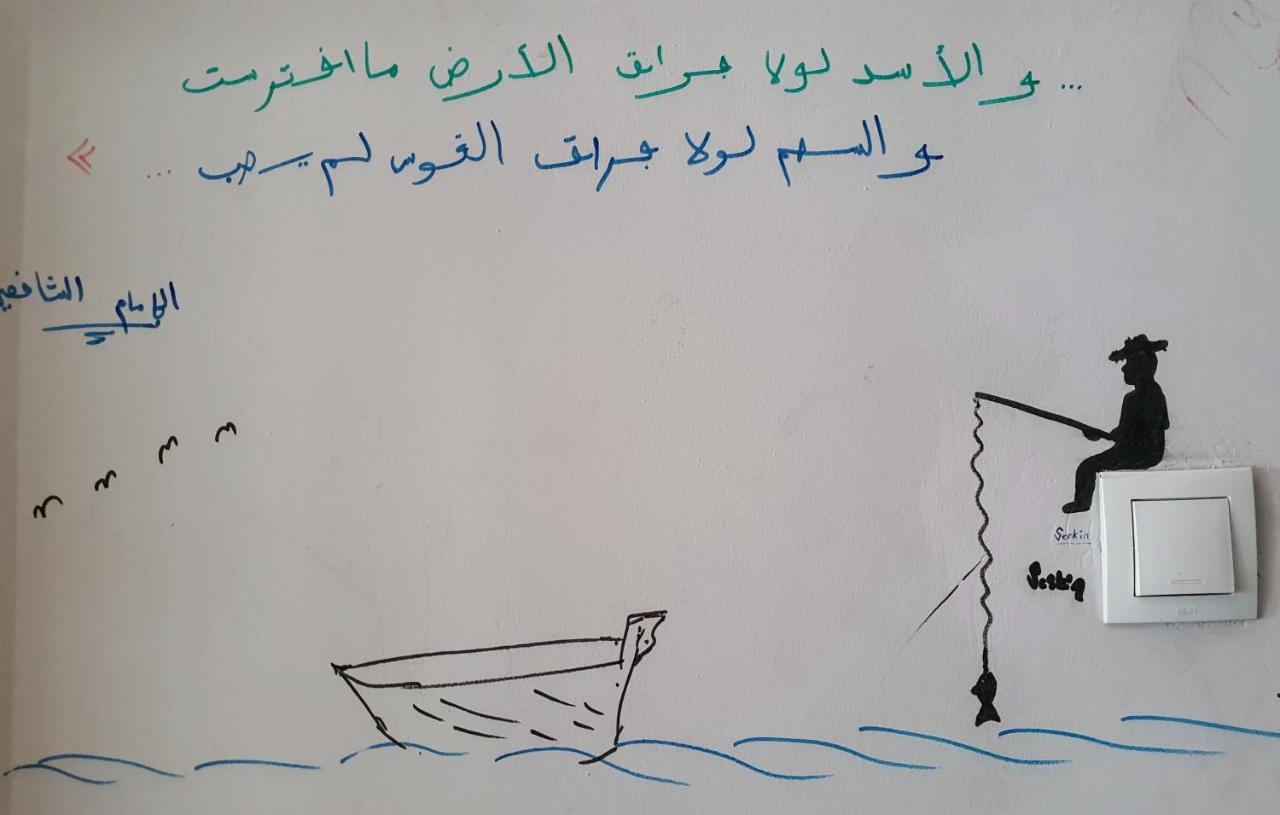 ... و الأسد لولا فراق الأرض ما افترست
و السهم لولا فراق القوس لم يصب ... »
الإمام الشافعي
Serkin